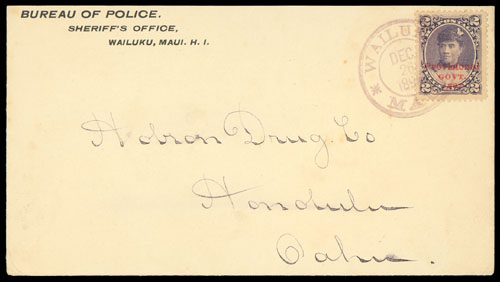 BUREAU OF POLICE.
SHERIFF'S OFFICE,
WAILUKU, MAUI. H. I.
WAILU
DEC
MA
2 2
PROVISIONAL
GOVT.
Hobron Drug Co
Honolulu
Oahu.